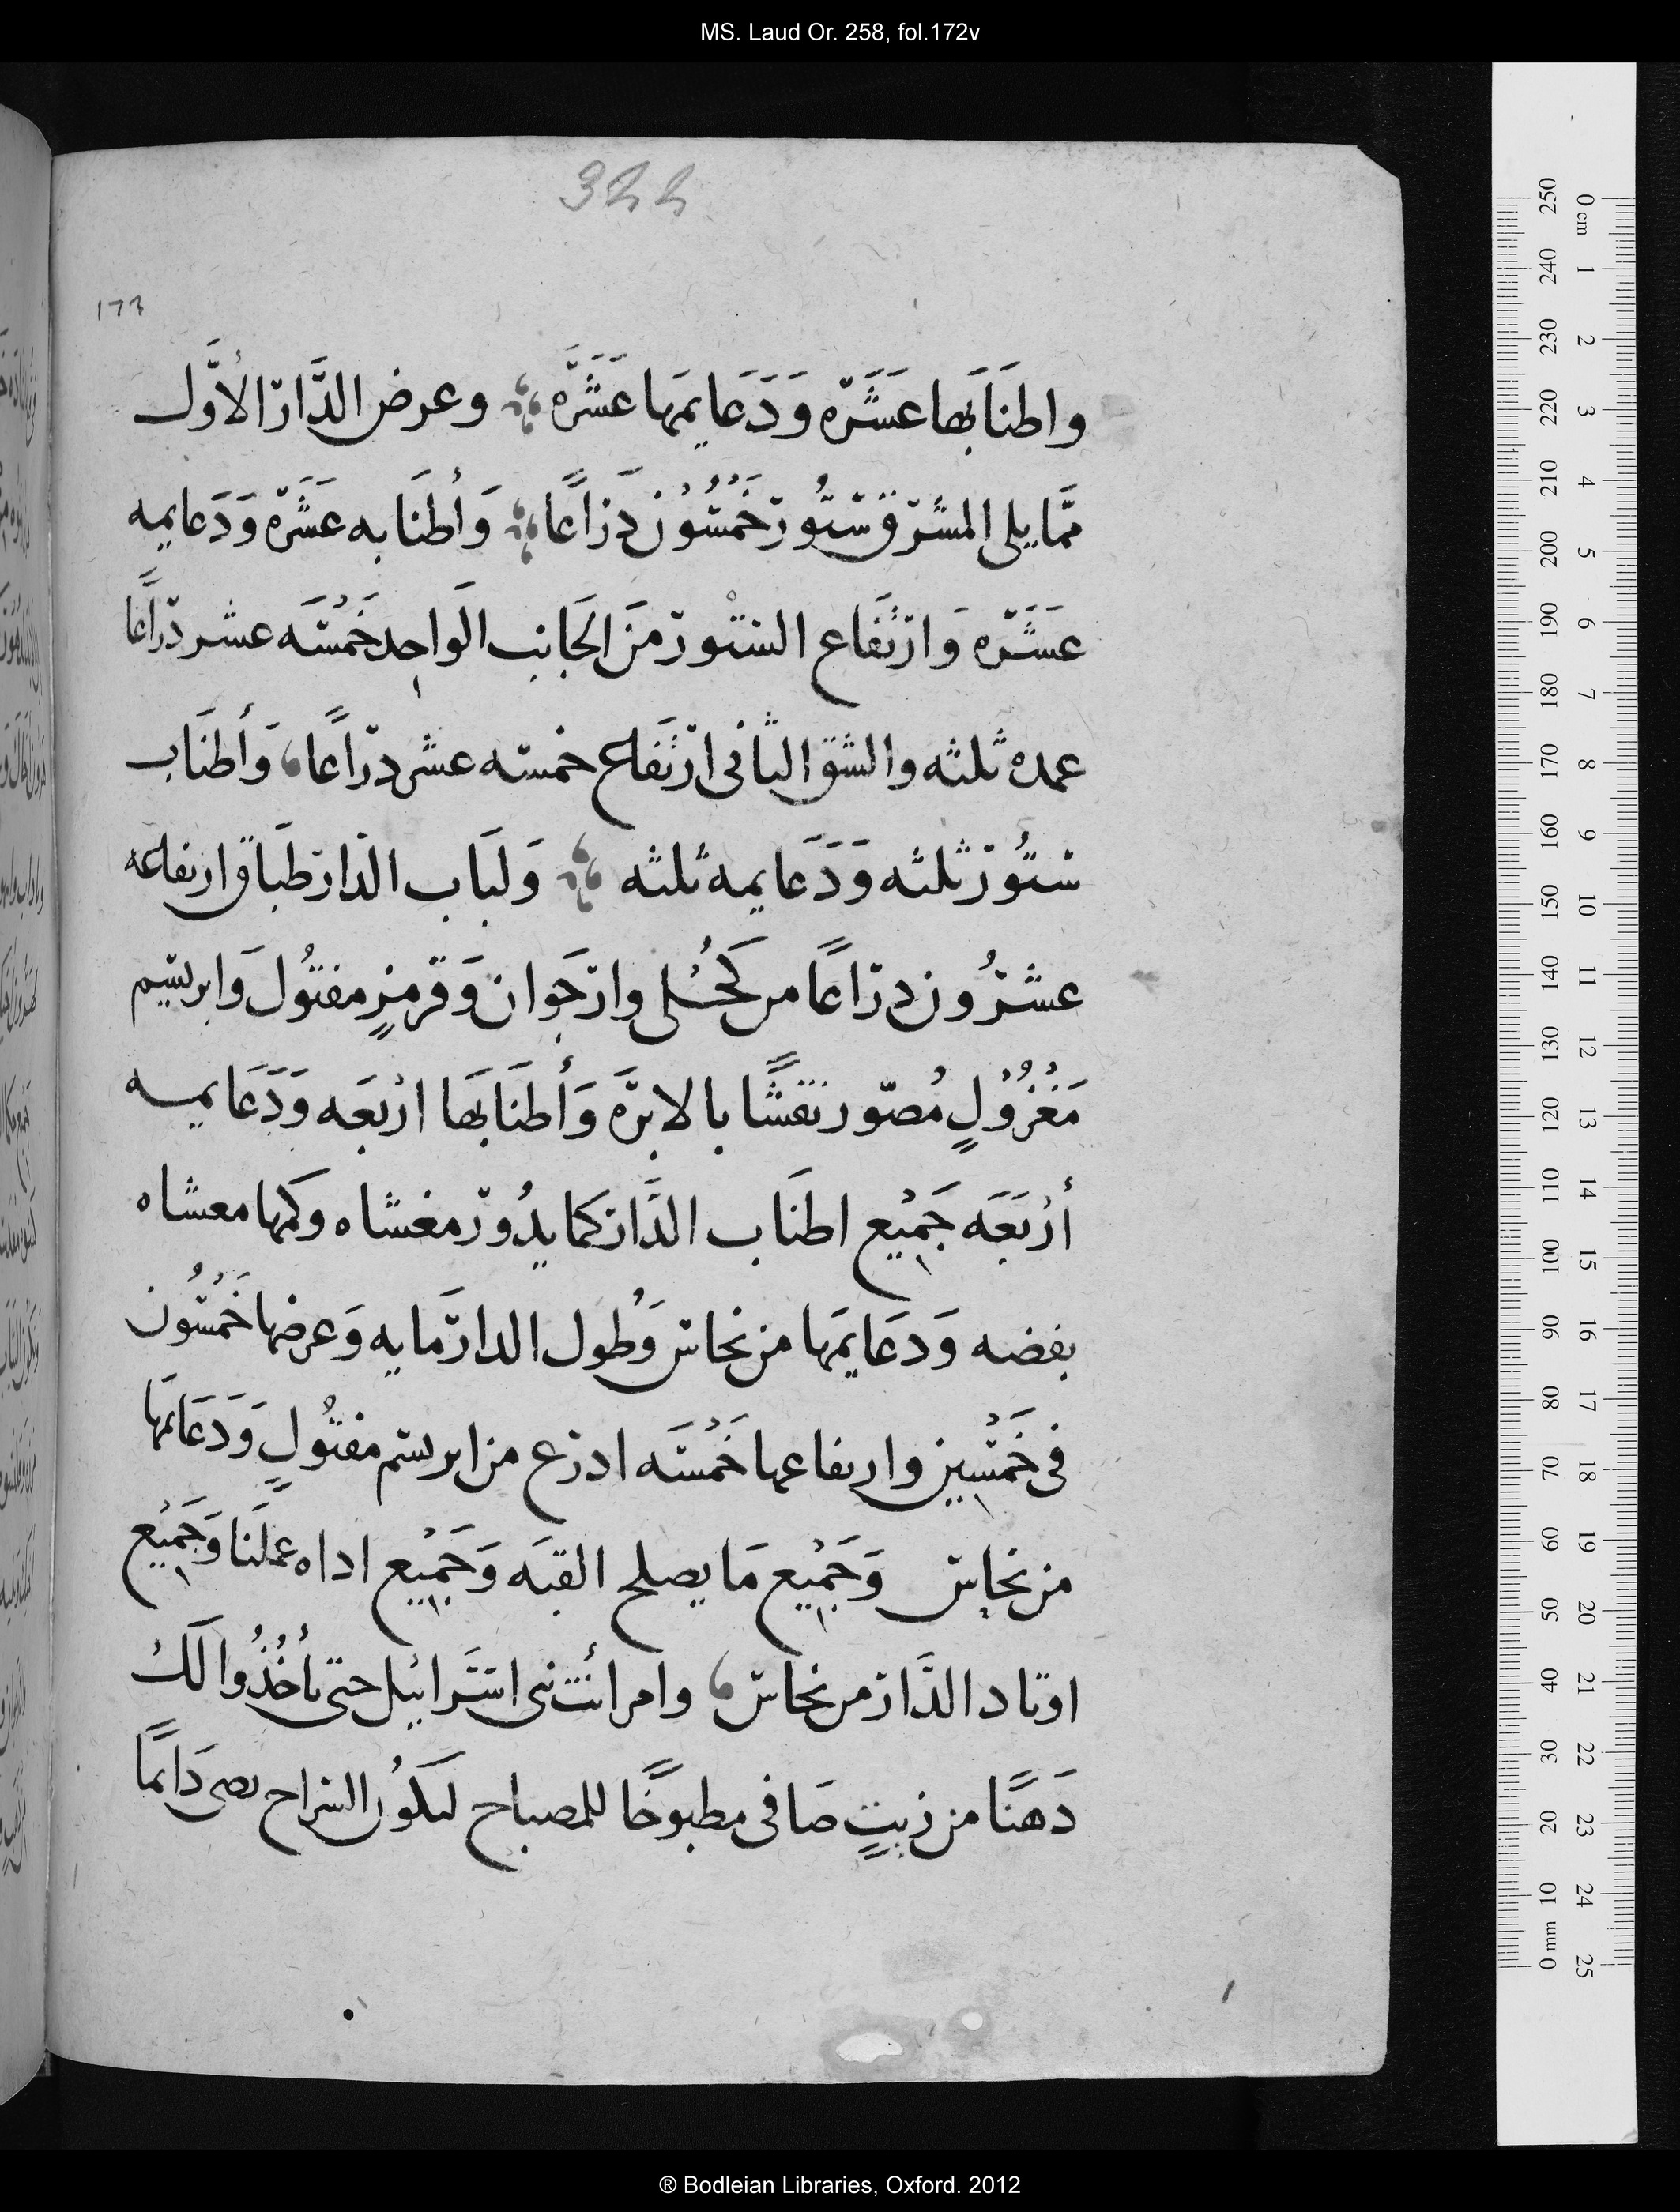 MS. Laud Or. 258, fol.172v
322
173
واطنَابَها عَشَرَه وَدَعَايمَها عَشَرَّه وعرض الدَّار الأوَّل
ممَّا يلى المشرق سَتُور خَمْسُوُن دَرَاعًا وَأطنَابه عَشَرَه وَدَعايمه
عَشَرَه وَارتفَاع الستور مَن الجَانِب الوَاحِد خَمْسَه عشر درَاعًا
عمده ثلثه والشق الثانى ارتفَاع خمسه عشر درَاعًا وَأطنَاب
ستُور ثلثه وَدَعَايمه ثلثه وَلبَاب الدار طَبَاق ارتفاعه
عشرُون درَاعًا من كَحُلى وارجَوان وَقرمزٍ مفتُول وَابريسم
مَغْزُوُلٍ مُصّور نقشًا بالابرَه وَأطنَابَها ارْبعَه وَدَعَايمه
أرْبَعَه جَمْيع اطنَاب الدَّار كما يدُور مغشاه وكمها معشاه
بفضه وَدعَايمَها من نحاس وَطُول الدار مَايه وَعرضها خَمْسُون
فى خَمْسين وارتفاعها خَمْسَه ادرع من ابريسم مفتُولٍ وَدَعَايمَها
من نحاس وَجَمْيع مَا يصلح القبَه وَجَمْيع اداه عملنَا وَجَمْيع
اوتاد الدَّار من نحاس وامر أنت بنى اسَرَائيل حتى يأخُذُوا لَكُ
دَهنًا من زيتٍ صَافى مطبوخًا للمصباح ليكوُن السراح يضى دَايمًا
0 cm 1 2 3 4 5 6 7 8 9 10 11 12 13 14 15 16 17 18 19 20 21 22 23 24 25
250 240 230 220 210 200 190 180 170 160 150 140 130 120 110 100 90 80 70 60 50 40 30 20 10 0 mm
® Bodleian Libraries, Oxford. 2012